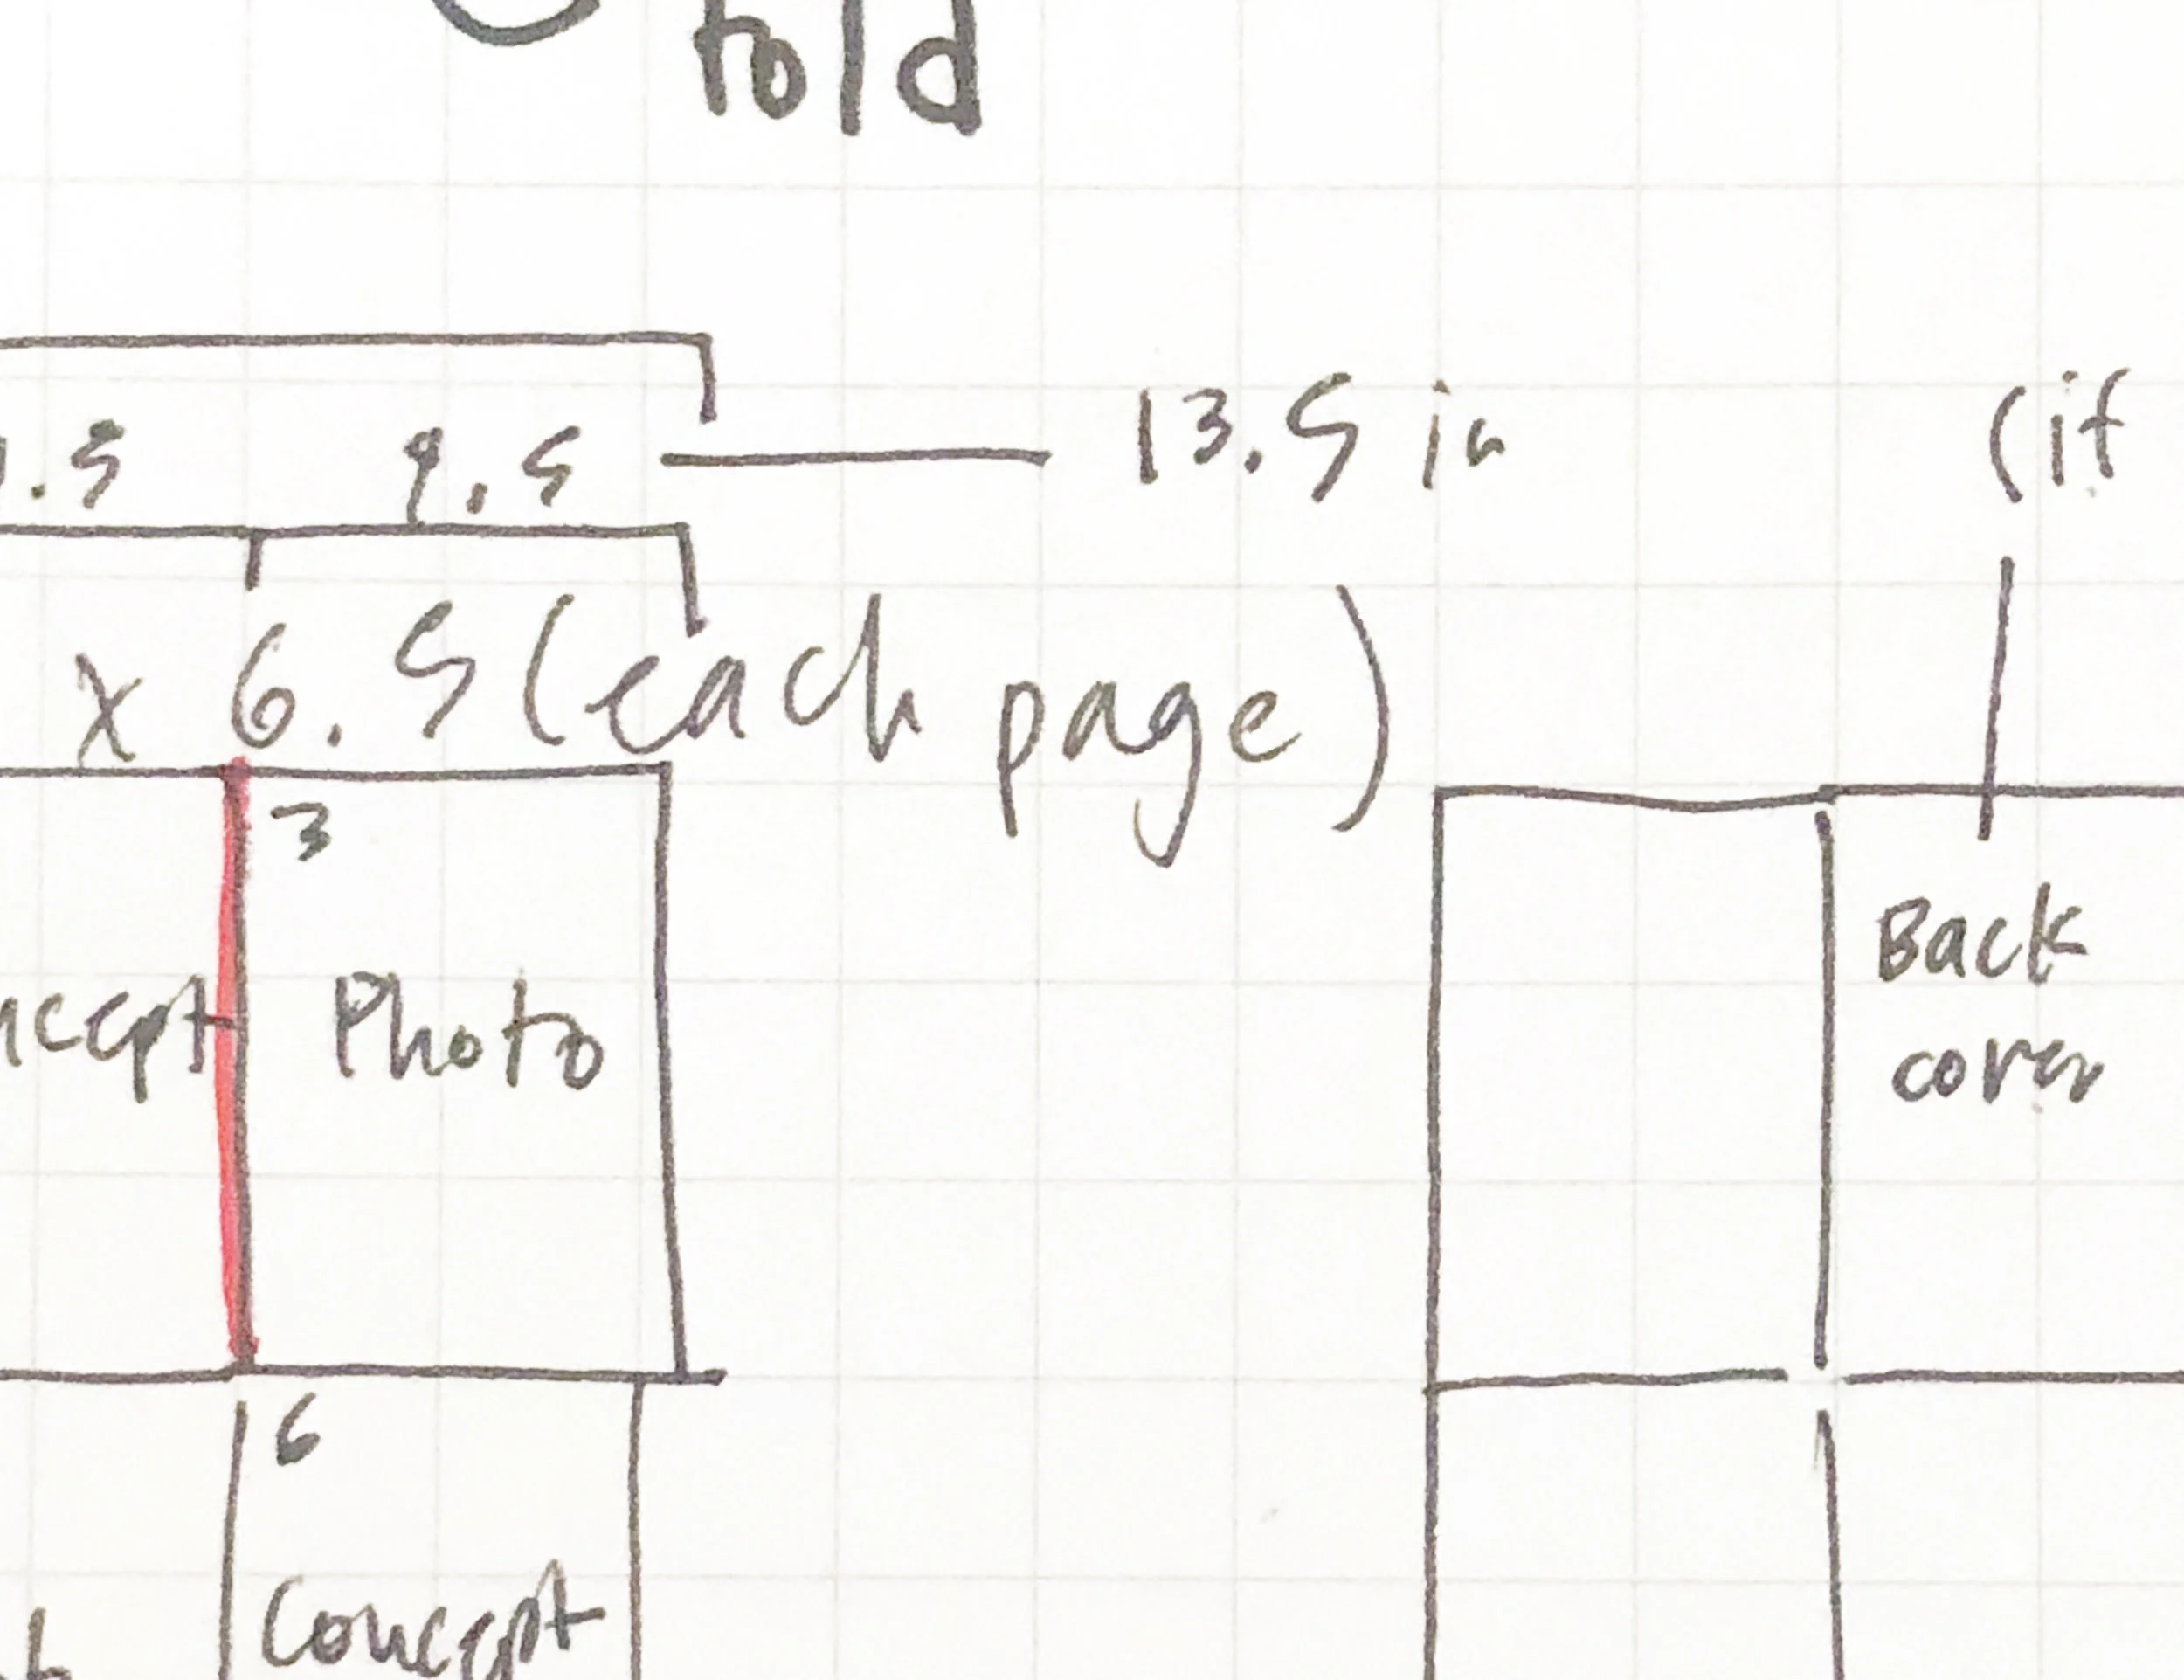 fold
.5 4.5 13.5 in (if
x 6.5 (each page)
3
Photo
Back
cover
6
Concept